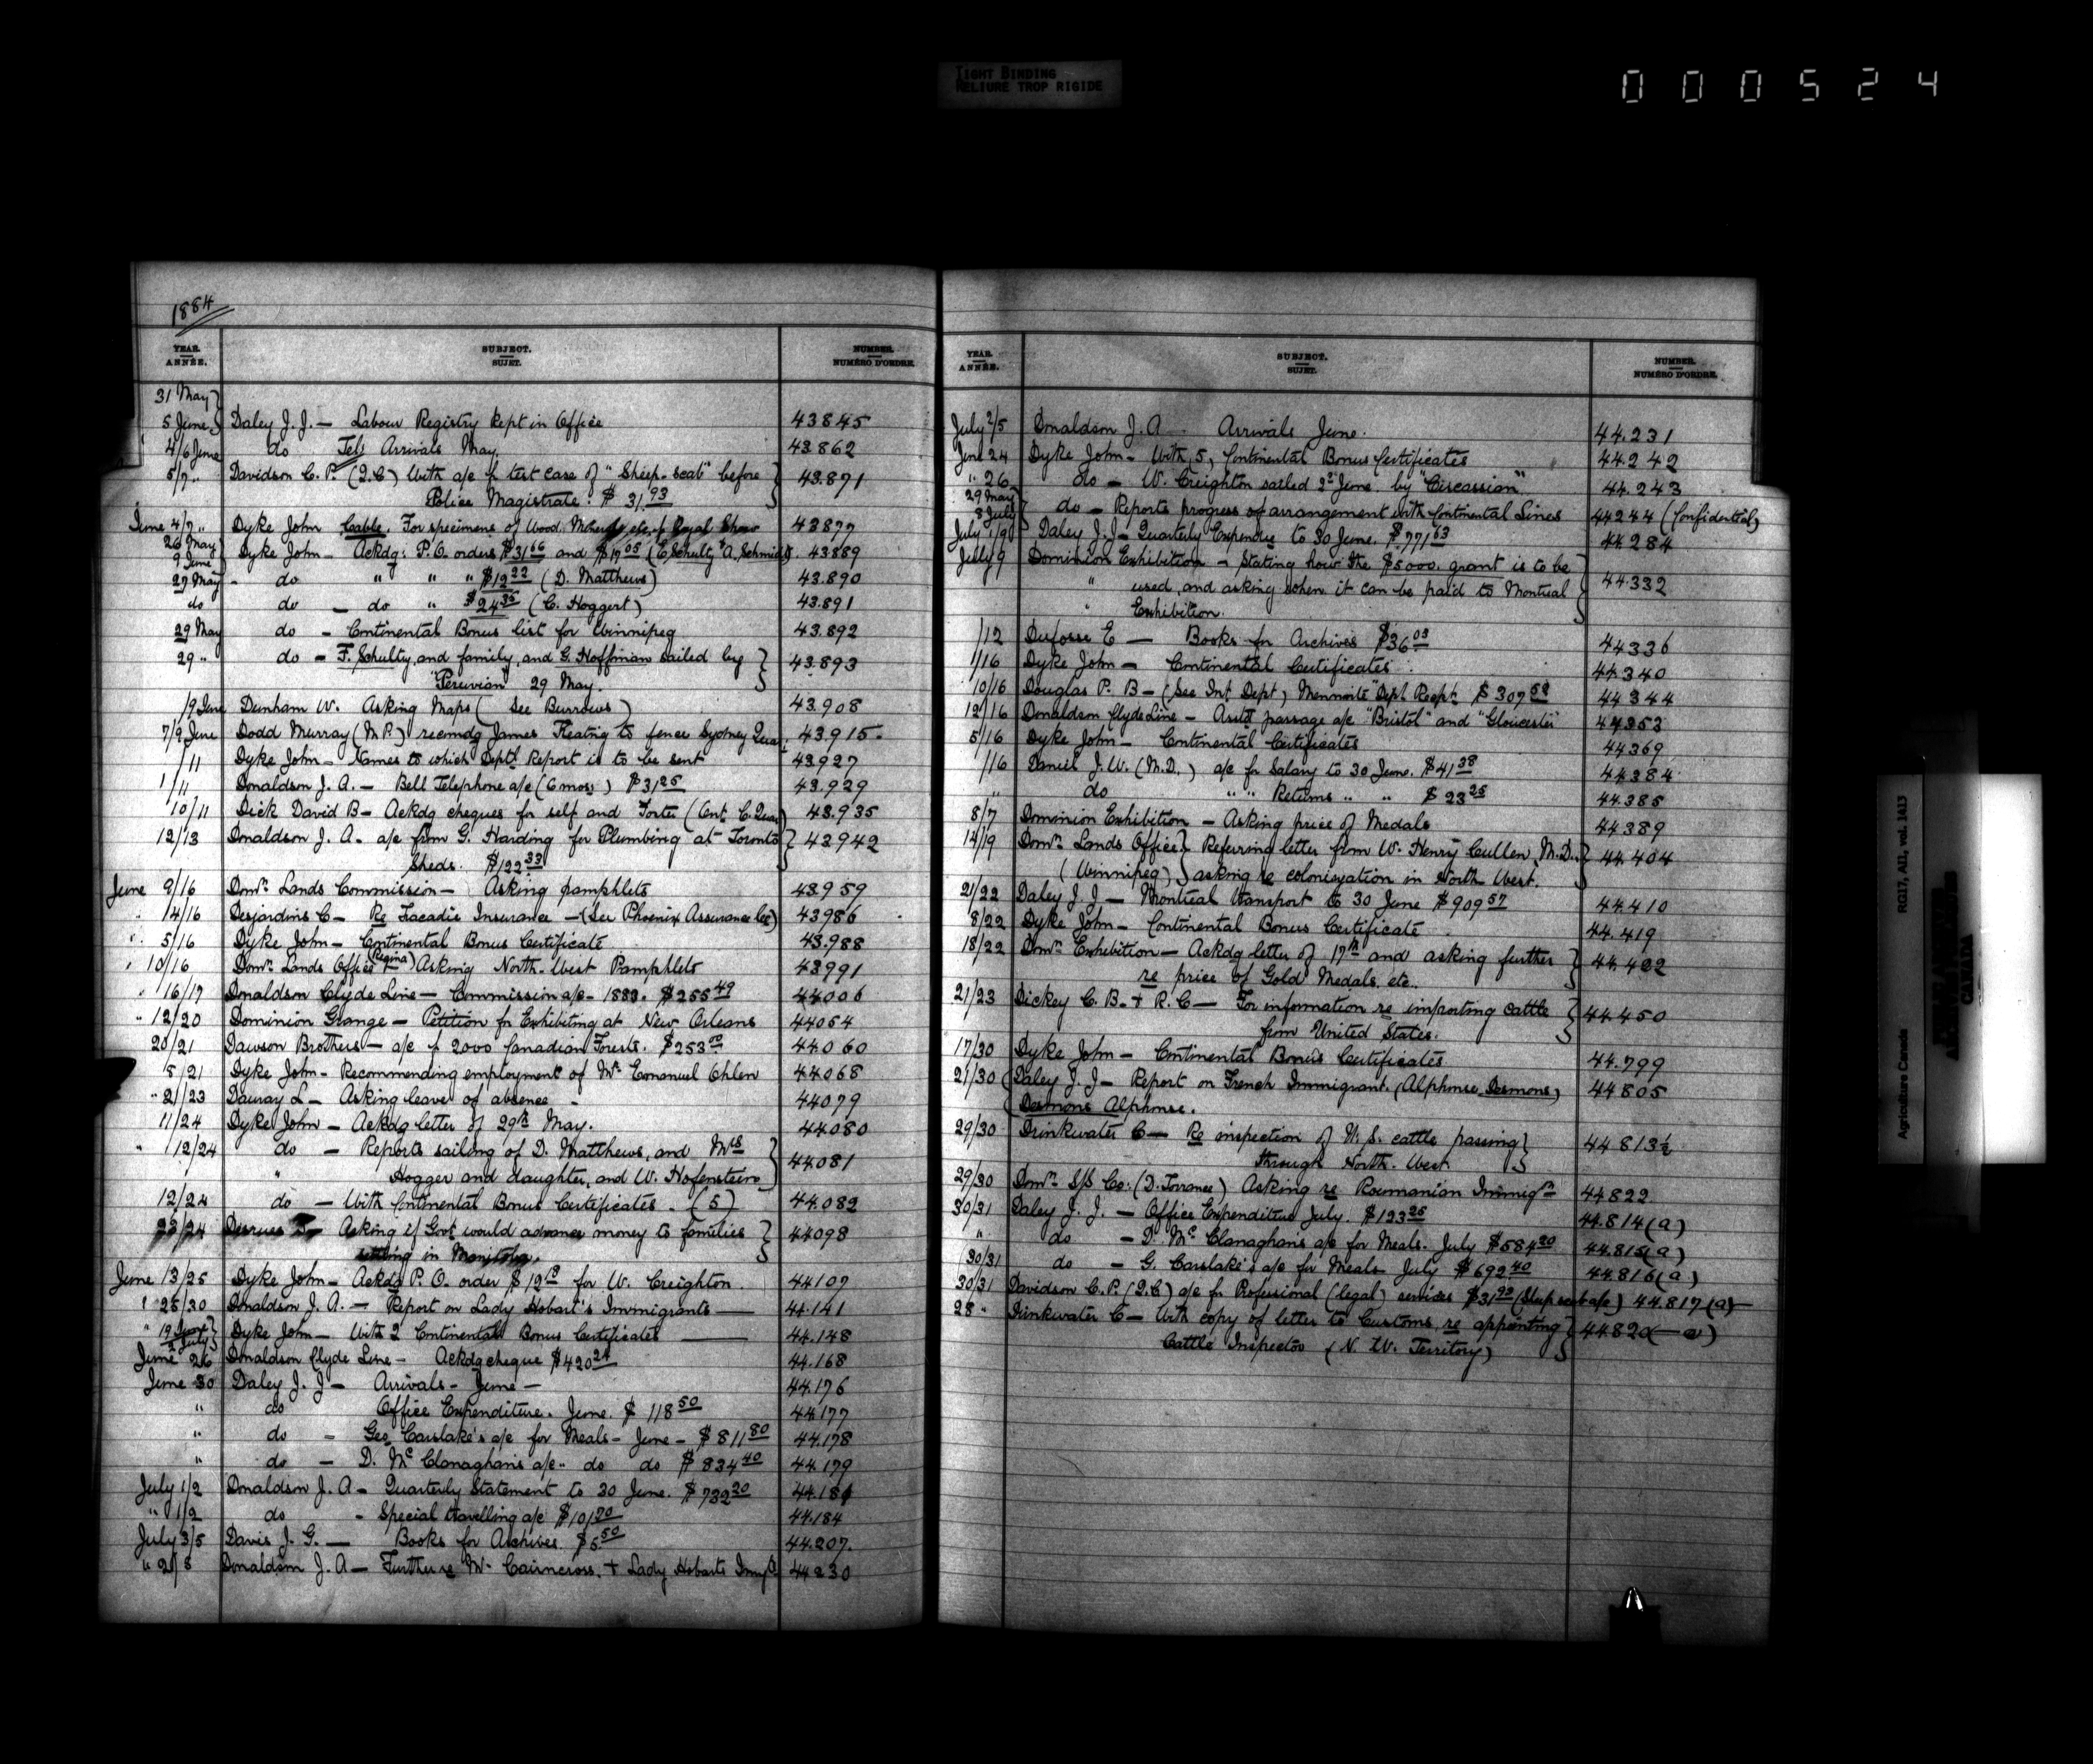 TIGHT BINDING
RELIURE TROP RIGIDE
000524
1884
YEAR. ANNÉE. SUBJECT. SUJET. NUMBER. NUMÉRO D'ORDRE.
31 May
5 June } Daley J. J. — Labour Registry kept in Office 43845
4/6 June do Tel: Arrivals May. 43862
5/7 " Davidson C. P. (Q.C) With a/c of test case of "Sheep-scab" before } 43.871
Police Magistrate. $31.93
June 4/7 " Dyke John Cable. For specimens of wood, etc. Royal Show 43877
26 May
9 June Dyke John — Ackdg: P.O. orders $31 66 and $19 05 (E. Schulty & A. Schmidt) 43889
27 May - do " " " $12 22 (D. Matthews) 43.890
do do — do " $24 35 (C. Hoggert) 43.891
29 May do — Continental Bonus list for Winnipeg 43.892
29 " do — F. Schulty, and family, and G. Hoffman sailed by } 43.893
"Peruvian 29 May.
/9 June Dunham W. Asking Maps (See Burrows) 43.908
7/9 June Dodd Murray (M.P.) recmdg James Keating to fence Sydney Quar. 43.915
/11 Dyke John — Names to which Deptl Report is to be sent 43927
1/11 Donaldson J. A. — Bell Telephone a/c (6 mos) $31 25 43.929
10/11 Dick David B — Ackdg cheques for self and Foster (Ont. C. Quar) 43.935
12/13 Donaldson J. A. a/c from G. Harding for Plumbing at Toronto } 43942
Sheds. $122 33
June 9/16 Domn. Lands Commission — Asking pamphlets 43959
" 14/16 Desjardins C — Re Tracadie Insurance — (See Phoenix Assurance Co) 43986
" 5/16 Dyke John — Continental Bonus Certificate 43.988
" 10/16 Domn. Lands Office (Regina) Asking North-West Pamphlets 43991
" 16/17 Donaldson Clyde Line — Commission a/c - 1883. $255 49 44006
" 12/20 Dominion Grange — Petition for Exhibiting at New Orleans 44054
20/21 Dawson Brothers — a/c of 2000 Canadian Forests. $253 00 44060
5/21 Dyke John — Recommending employment of Mr. Emanuel Ohlen 44068
" 21/23 Dauray L — Asking leave of absence - 44079
11/24 Dyke John — Ackdg letter of 29th May. 44.080
" 12/24 do — Reports sailing of D. Matthews, and Mrs } 44081
" Hogger and daughter, and W. Hofenstein
12/24 do — With Continental Bonus Certificates. (5) 44.082
23/24 Desrues Asking if Govt would advance money to families } 44098
settling in Manitoba.
June 13/25 Dyke John — Ackdg P.O. order $12 18 for W. Creighton 44107
" 25/30 Donaldson J. A. — Report on Lady Hobart's Immigrants — 44.141
" 19 June
2 July } Dyke John — With 2 Continental Bonus Certificates — 44.148
June 26 Donaldson Clyde Line — Ackdg cheque $420 24 44.168
June 30 Daley J. J — Arrivals - June — 44.176
" do Office Expenditure. June. $118 50 44177
" do — Geo. Carslake's a/c for Meals - June - $811 80 44.178
" do — D. McClanaghans a/c " do do $834 40 44.179
July 1/2 Donaldson J. A — Quarterly Statement to 30 June. $732 20 44.181
" 1/2 do - Special travelling a/c $101 20 44.184
July 3/5 Davis J. G. — Books for Archives. $5 50 44.207.
" 2/8 Donaldson J. A — Further re Mr. Cairncross. + Lady Hobarts Immgts 44230
YEAR. ANNÉE. SUBJECT. SUJET. NUMBER. NUMÉRO D'ORDRE.
July 2/5 Donaldson J. A Arrivals June. 44.231
June 24 Dyke John — With 5, Continental Bonus Certificates 44242
" 26 do — W. Creighton sailed 2d June. by "Circassian" 44.243
29 May
8 July } do — Reports progress of arrangement with Continental Lines 44244 (Confidential)
July 1/9 Daley J. J — Quarterly Expendre to 30 June. $771 63 44284
July 9 Dominion Exhibition — Stating how the $5000. grant is to be } 44.332
" used, and asking when it can be paid to Montreal
" Exhibition.
/12 Dufosse E — Books for Archives $36 03 44336
1/16 Dyke John — Continental Certificates 44.340
10/16 Douglas P. B — (See Int Dept) Mennonite Deptl Recpt $307 58 44344
12/16 Donaldson Clyde Line — Asstd passage a/c "Bristol" and "Gloucester" 44353
5/16 Dyke John — Continental Certificates 44369
/16 Daniel J. W. (M.D.) a/c for Salary to 30 June. $41 38 44384
" do " " Returns " " $23 25 44.385
8/7 Dominion Exhibition — Asking price of Medals 44389
14/19 Domn. Lands Office } Referring letter from W. Henry Cullen, M.D. } 44.404
(Winnipeg) } asking re colonization in North West.
21/22 Daley J. J — Montreal transport to 30 June $909 57 44.410
8/22 Dyke John — Continental Bonus Certificate 44.419
18/22 Domn. Exhibition — Ackdg letter of 17th and asking further } 44.422
re price of Gold Medals, etc.
21/23 Dickey C. B. + R. C — For information re importing cattle } 44.450
from United States.
17/30 Dyke John — Continental Bonus Certificates 44.799
21/30 Daley J. J — Report on French Immigrant. (Alphonse Desmons) 44805
Desmons Alphonse.
29/30 Drinkwater C — Re inspection of U. S. cattle passing } 44813½
through North-West
29/30 Domn. S/S Co: (D. Torrance) Asking re Roumanian Immign 44822
30/31 Daley J. J. — Office Expenditure July. $123 25 44.814 (a)
" do — D. McClanaghan's a/c for Meals. July $584 20 44.815 (a)
(30/31 do — G. Carslake's a/c for Meals July $692 40 44.816 (a)
30/31 Davidson C. P. (Q.C) a/c for Professional (legal) services $31 93 (Sheep scab a/c) 44.817 (a)
28 " Drinkwater C — With copy of letter to Customs, re appointing } 44820 (—a)
Cattle Inspector (N. W. Territory)
Agriculture Canada RG17, AII, vol. 1413
CANADA